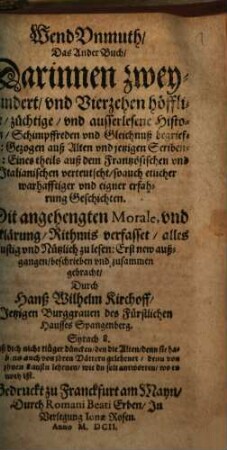 WendVnmuth/
Das Ander Buch/
Darinnen zwey-
undert/ vnd Vierzehen höffli-
/ züchtige/ vnd ausserlesene Histo-
/ Schimpffreden vnd Gleichnuß begrief-
: Gezogen auß Alten vnd jetzigen Scriben-
: Eines theils auß dem Frantzösischen vnd
Italianischen verteutscht/ sovuch etlicher
warhafftiger vnd eigner erfah-
rung Geschichten.
Mit angehengten Morale, vnd
klärung/ Rithmis verfasset/ alles
lustig vnd Nützlich zu lesen: Erst new auß-
gangen/ beschrieben vnd zusammen
gebracht/
Durch
Hanß Wilhelm Kirchoff/
Jetzigen Burggrauen des Fürstlichen
Hausses Spangenberg.
Syrach 8.
ß dich nicht klüger düncken/ den die Alten/ denn sie ha-
auch von jhren Vättern gelehrnet/ denn von
jhnen kanstu lehrnen/ wie du solt antworten/ wo es
noth ist.
Gedruckt zu Franckfurt am Mayn/
Durch Romani Beati Erben/ In
Verlegung Ionæ Rosen.
Anno M. DCII.